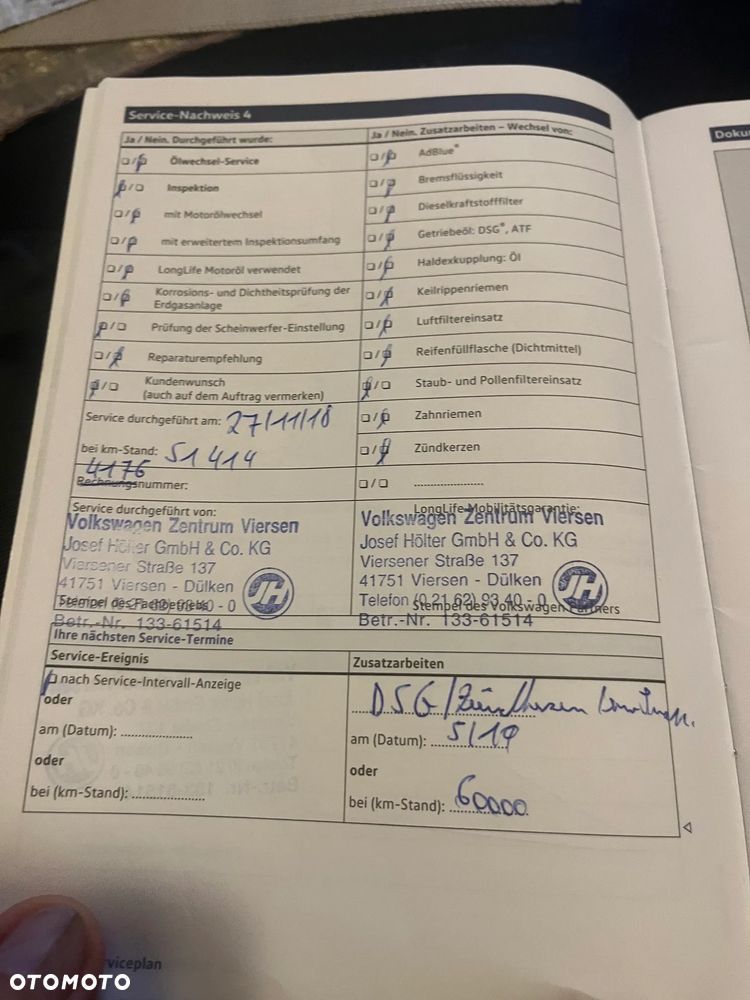 Service-Nachweis 4
Doku
Ja / Nein. Durchgeführt wurde:
Ölwechsel-Service
Inspektion
mit Motorölwechsel
mit erweitertem Inspektionsumfang
LongLife Motoröl verwendet
Korrosions- und Dichtheitsprüfung der
Erdgasanlage
Prüfung der Scheinwerfer-Einstellung
Reparaturempfehlung
Kundenwunsch
(auch auf dem Auftrag vermerken)
Service durchgeführt am: 27/11/18
bei km-Stand: 51 414
4176
Rechnungsnummer:
Ja / Nein. Zusatzarbeiten – Wechsel von:
AdBlue®
Bremsflüssigkeit
Dieselkraftstofffilter
Getriebeöl: DSG®, ATF
Haldexkupplung: Öl
Keilrippenriemen
Luftfiltereinsatz
Reifenfüllflasche (Dichtmittel)
Staub- und Pollenfiltereinsatz
Zahnriemen
Zündkerzen
......................
Service durchgeführt von:
Volkswagen Zentrum Viersen
Josef Hölter GmbH & Co. KG
Viersener Straße 137
41751 Viersen - Dülken
Stempel des Fachbetriebs
Betr.-Nr. 133-61514
JH
LongLife-Mobilitätsgarantie:
Volkswagen Zentrum Viersen
Josef Hölter GmbH & Co. KG
Viersener Straße 137
41751 Viersen - Dülken
Telefon (0 21 62) 93 40 - 0
Stempel des Volkswagen Partners
Betr.-Nr. 133-61514
JH
Ihre nächsten Service-Termine
Service-Ereignis
nach Service-Intervall-Anzeige
oder
am (Datum): ....................
oder
bei (km-Stand): ....................
Zusatzarbeiten
DSG/Zündkerzen
am (Datum): 5/19
oder
bei (km-Stand): 60000
viceplan
OTOMOTO